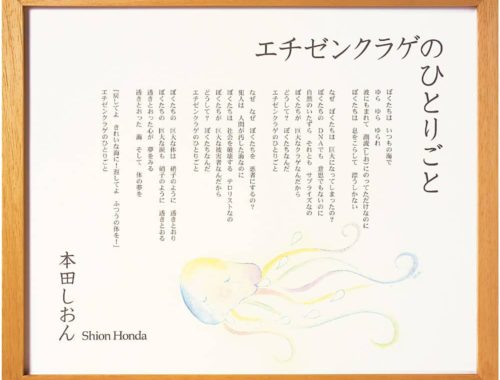 エチゼンクラゲのひとりごと
ぼくたちは いつもの海で
ゆら ゆら ゆられ
波にもまれて 潮流(しお)にのってただけなのに
ぼくたちは 息をこらして 漂うしかない
なぜ ぼくたちは 巨大になってしまったの?
ぼくたちの DNAでも 意思でもないのに
自然のいたずら それとも サプライズなの
どうして? ぼくたちが 巨大なクラゲなんだから
エチゼンクラゲのひとりごと
なぜ なぜ ぼくたちを 悪者にするの?
犯人は 人間が汚した海なのに
ぼくたちは 社会を破壊する テロリストなの
ぼくたちが 巨大な被害者なんだから
どうして? ぼくたちなんだ
エチゼンクラゲのひとりごと
ぼくたちの 巨大な体は 硝子のように 透きとおり
ぼくたちの 巨大な涙も 硝子のように 透きとおる
透きとおった心が 夢をみる
透きとおった 海 そして 体の夢を
エチゼンクラゲのひとりごと
「戻してよ きれいな海に!戻してよ ふつうの体を!」
本田しおん
Shion Honda